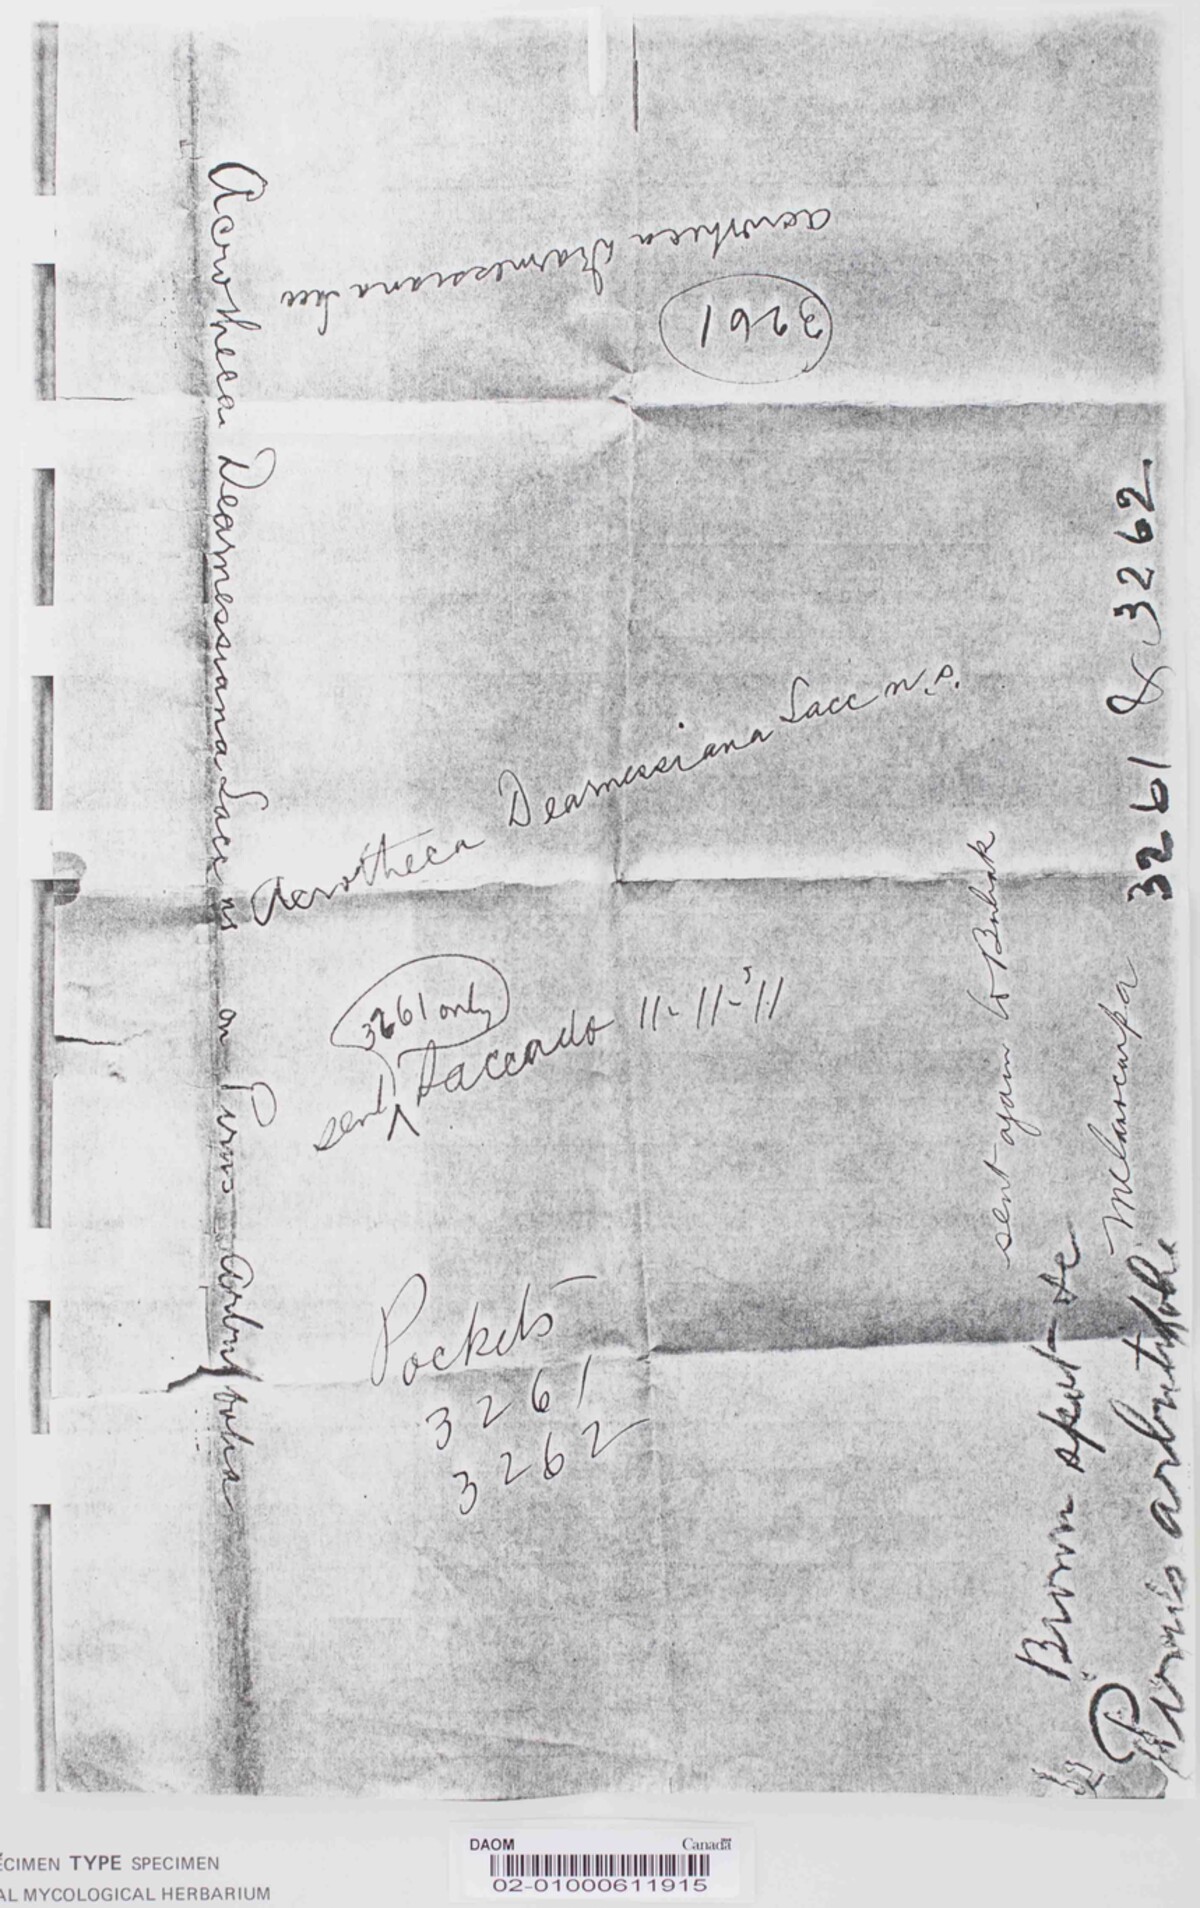 Acrotheca Dearnessiana Sacc
3261
Acrotheca Dearnessiana Sacc ns on Pyrus arbutifolia
Acrotheca Dearnessiana Sacc n.s.
3261 only
sent ^ Saccardo 11-11-'11
Pockets
3261
3262
sent again to Bubak
Brown spot
Pyrus arbutifolia melanocarpa 3261 & 3262
DAOM Canada
02-01000611915
ÉCIMEN TYPE SPECIMEN
AL MYCOLOGICAL HERBARIUM